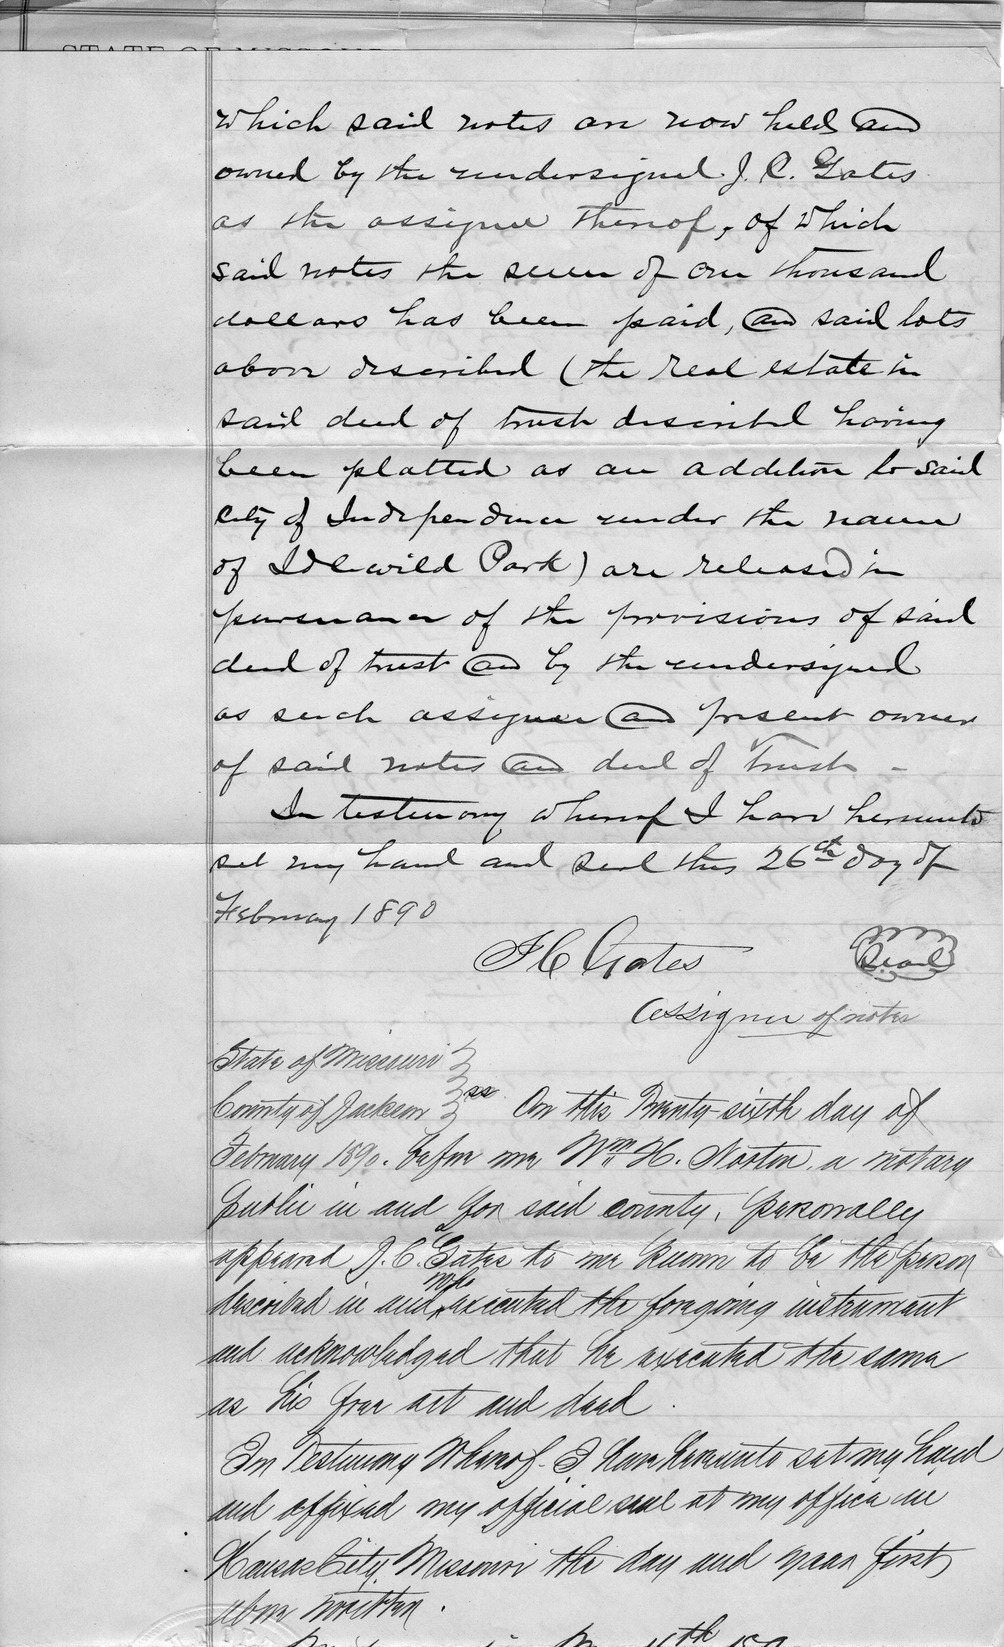 STATE OF MISSOURI
which said notes are now held and
owned by the undersigned J. C. Gates
as the assignee thereof, of which
said notes the sum of one thousand
dollars has been paid, and said lots
above described (the real estate in
said deed of trust described having
been platted as an addition to said
City of Independence under the name
of Idlewild Park) are released in
pursuance of the provisions of said
deed of trust and by the undersigned
as such assignee and present owner
of said notes and deed of Trust -
In testimony whereof I have hereunto
set my hand and seal this 26th day of
February 1890
J C Gates Seal
Assignee of notes
State of Missouri
County of Jackson ss On this Twenty sixth day of
February 1890. before me Wm H. Norton, a notary
public in and for said county, personally
appeared J. C. Gates to me known to be the person
described in and who executed the foregoing instrument
and acknowledged that he executed the same
as his free act and deed.
In Testimony Whereof. I have hereunto set my hand
and affixed my official seal at my office in
Kansas City, Missouri the day and year first
above written.